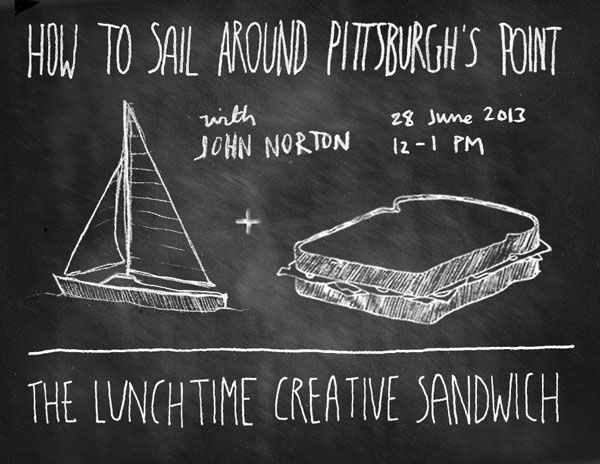 HOW TO SAIL AROUND PITTSBURGH'S POINT
with
JOHN NORTON
28 June 2013
12-1 PM
+
THE LUNCHTIME CREATIVE SANDWICH